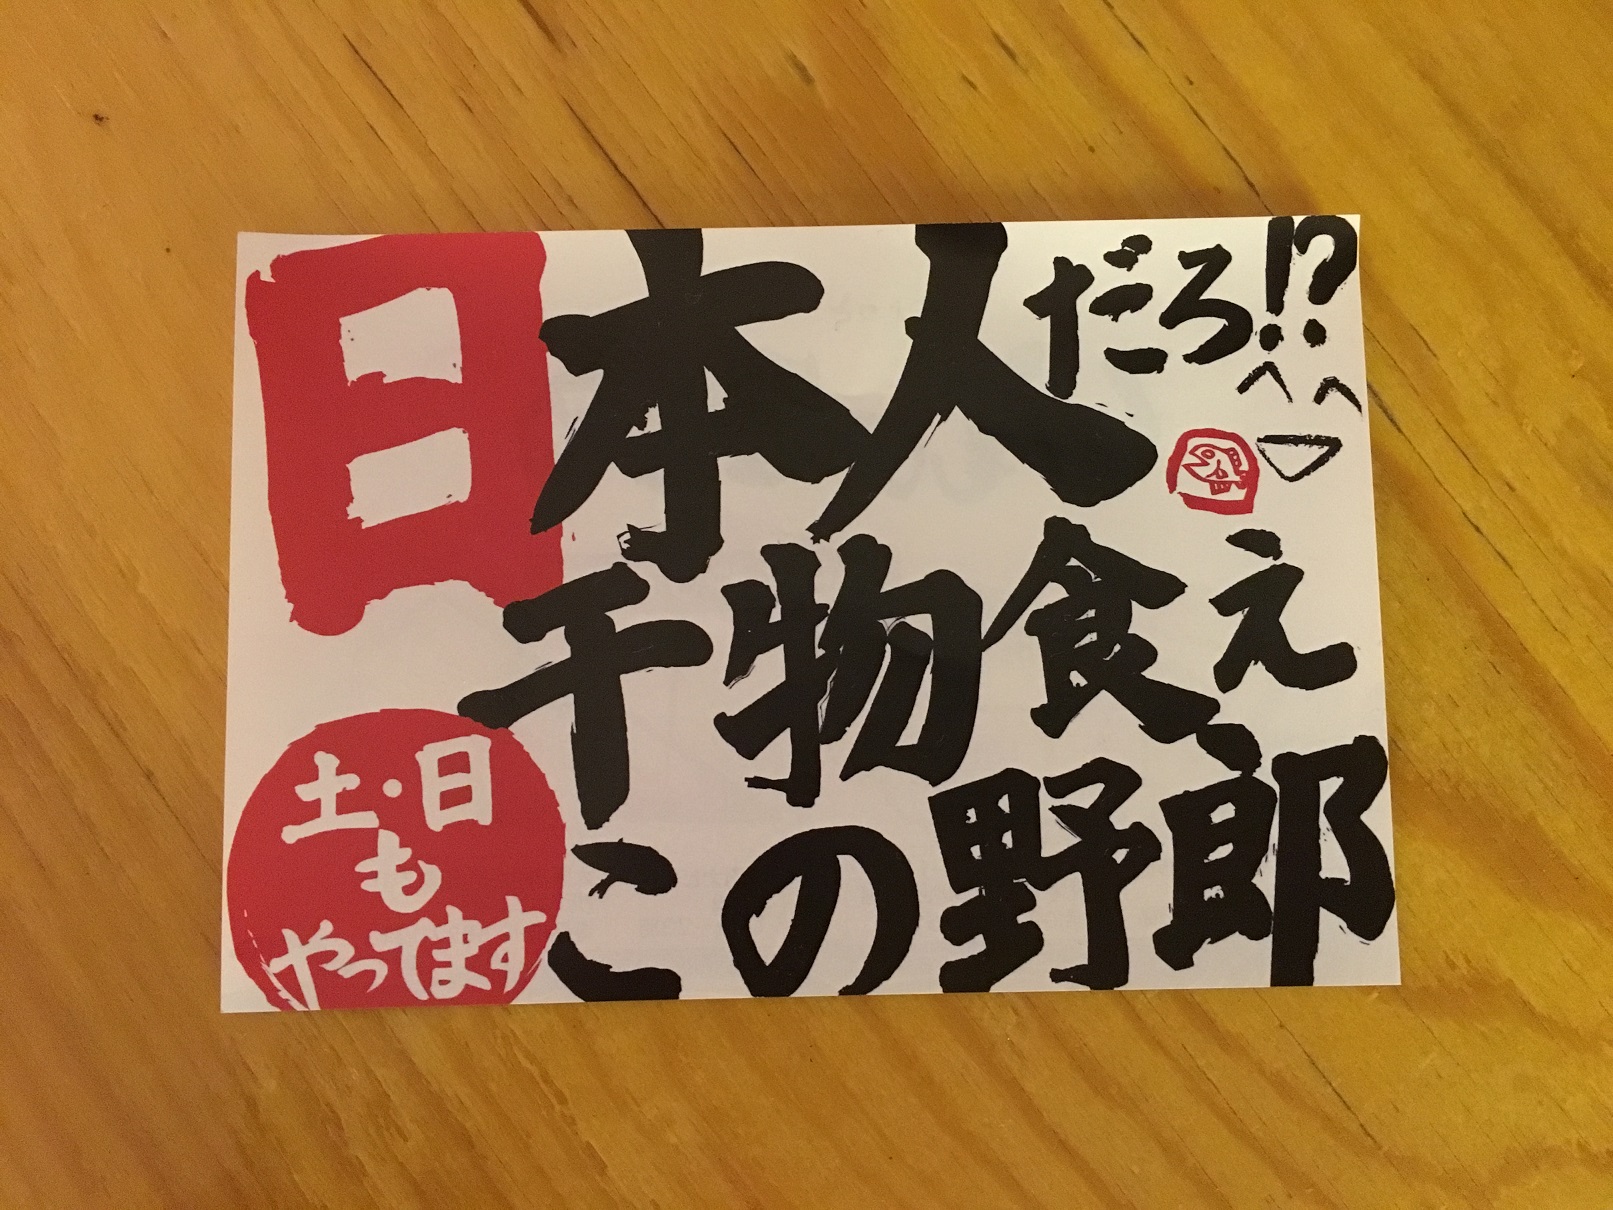 日本人だろ!?
干物食え
この野郎
土・日
も
やってます